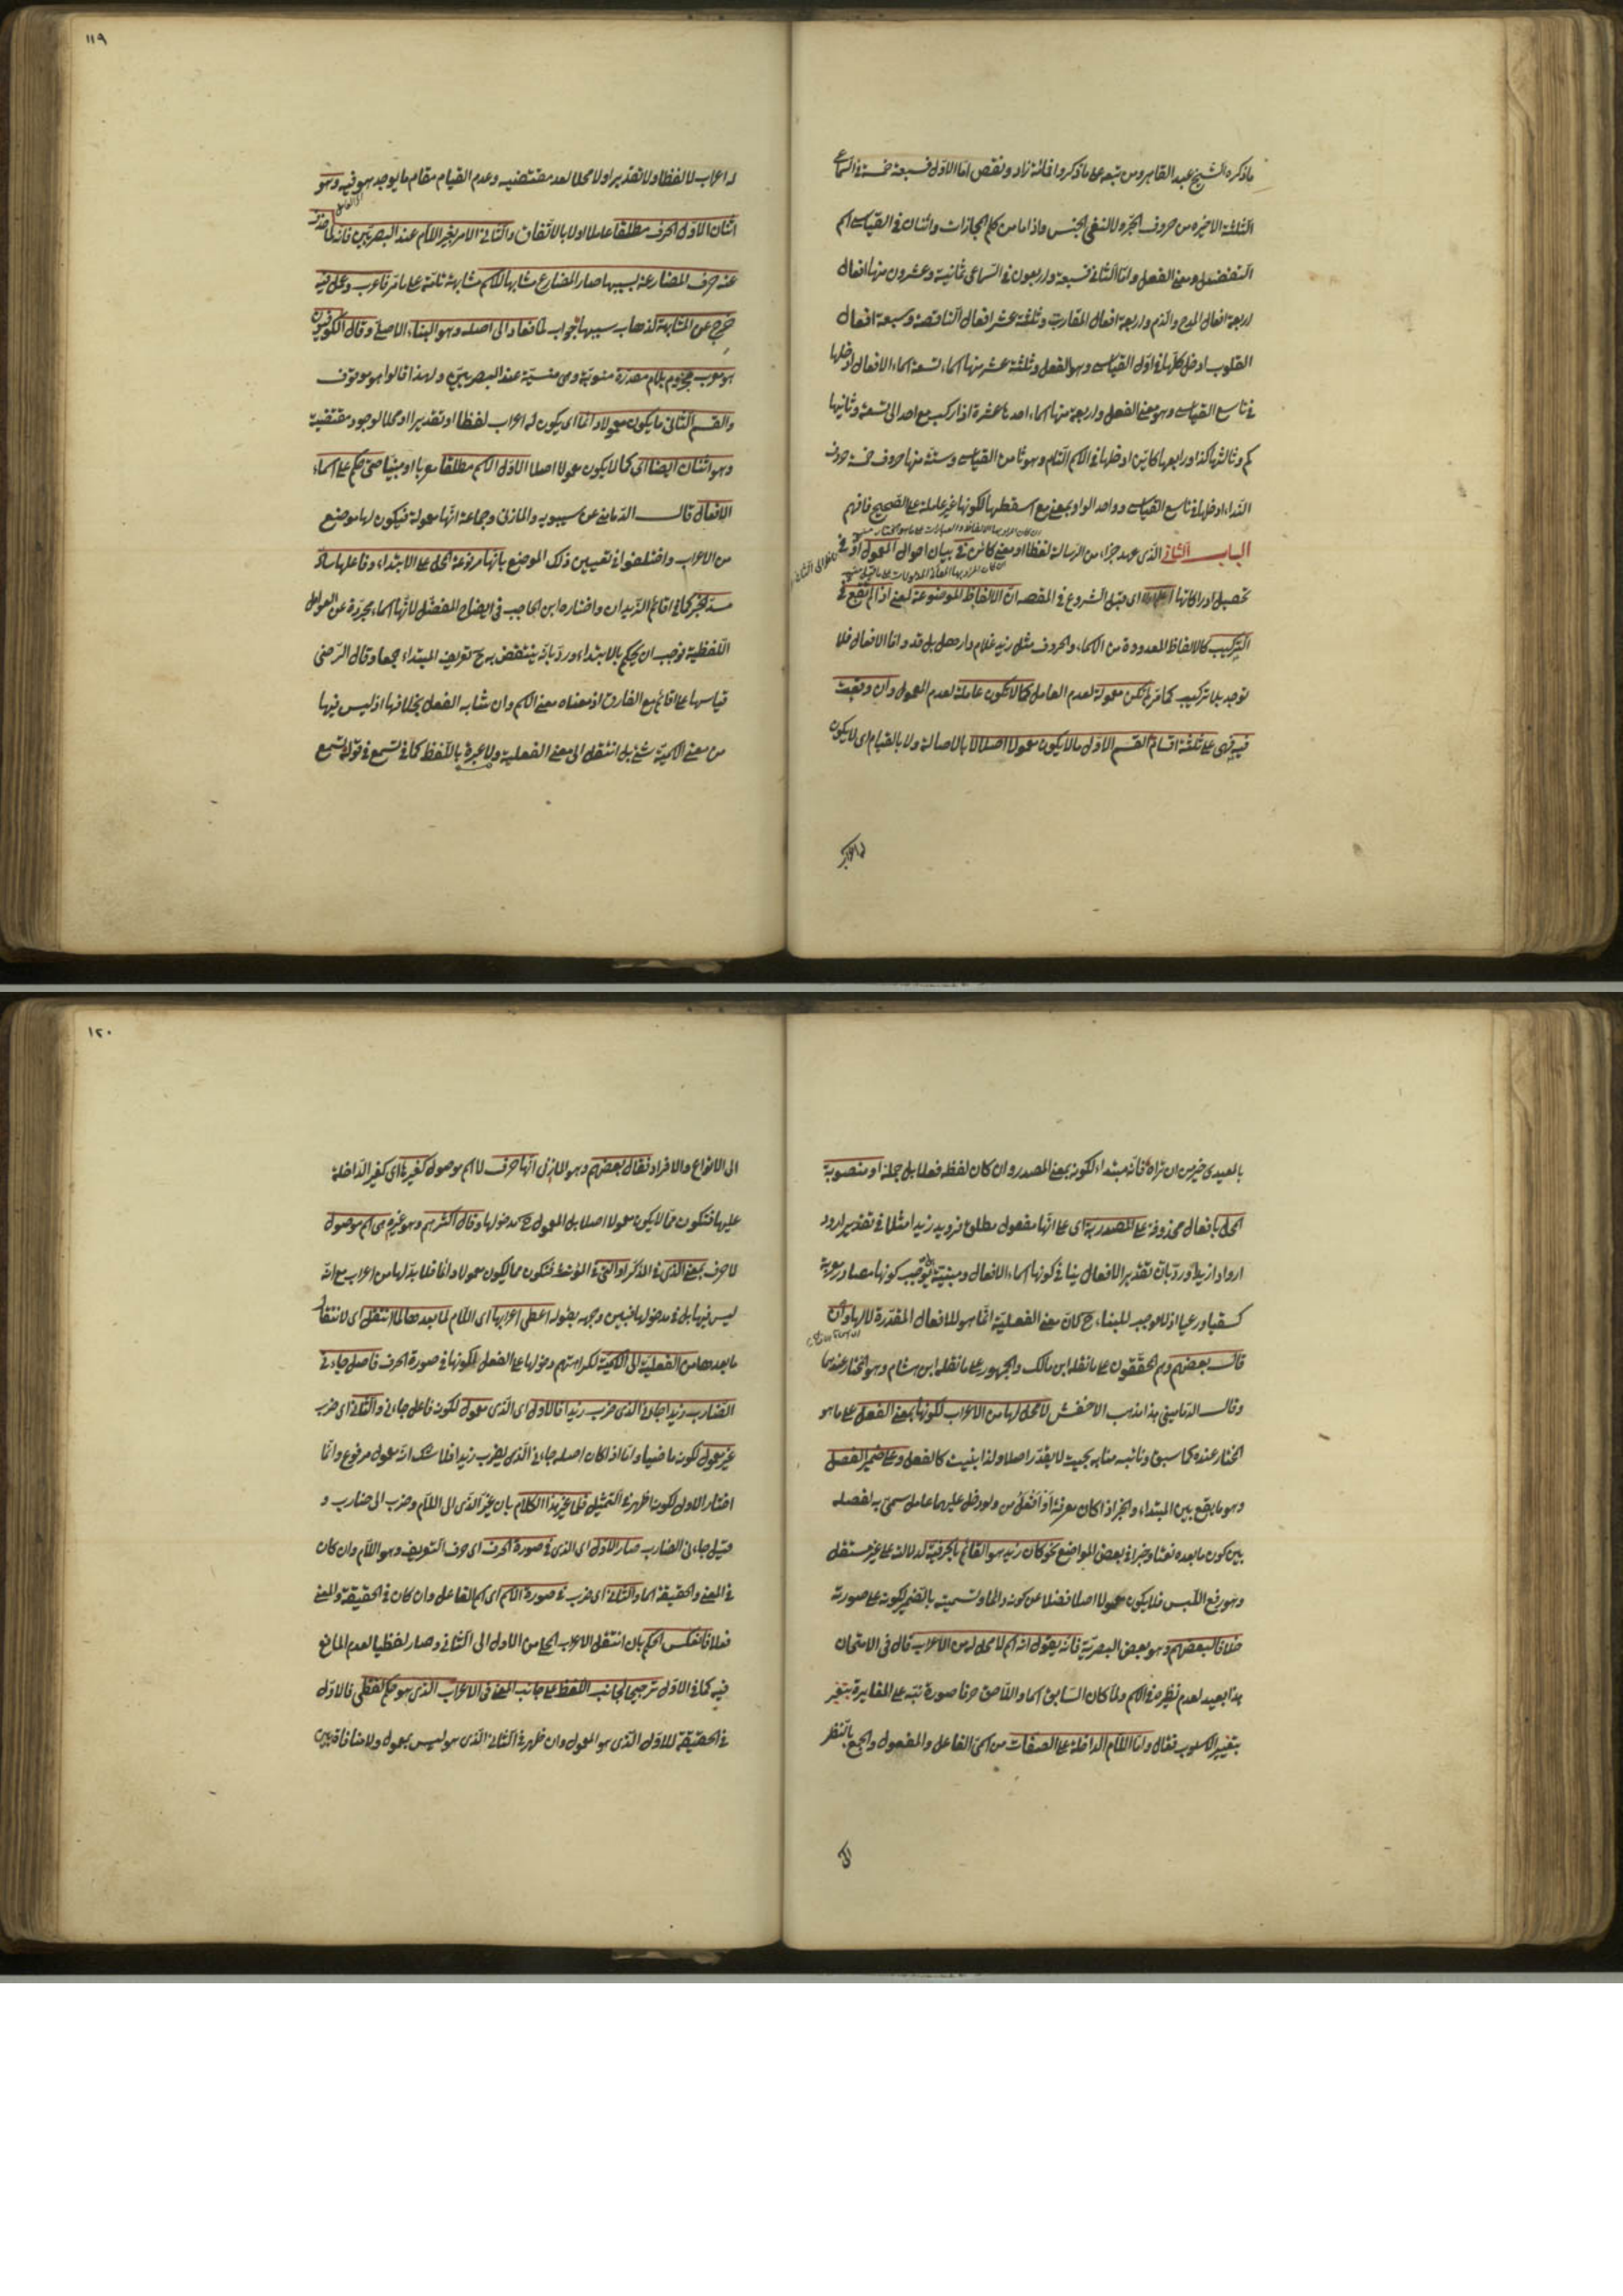 ما ذكره الشيخ عبد القاهر ومن تبعه على ما ذكروا فانه زاد ونقص اما الاول فسبعة خمسة في السماعي
الثلثة الاخيرة من حروف الجر ولا لنفي الجنس واذاما من كلم المجازات واثنان في القياسي اسم
التفضيل ومعنى الفعل واما الثاني فتسعة واربعون في السماعي ثمانية وعشرون منها افعال
اربعة افعال المدح والذم واربعة افعال المقاربة وثلثة عشر افعال الناقصة وسبعة افعال
القلوب ادخل كلها في اول القياسي وهو الفعل وثلثة عشر منها اسماء تسعة اسماء الافعال ادخلها
في تاسع القياسي وهو معنى الفعل واربعة منها اسماء احدها عشرة اذا ركب مع احد الى تسعة وثانيها
كم وثالثها كذا ورابعها كاين ادخلها في الاسم التام وهو ثامن القياسي وستة منها حروف خمسة حروف
النداء ادخلها في تاسع القياسي وواحد الواو بمعنى مع اسقطها لكونها غير عاملة على الصحيح فافهم
الباب الثاني الذي عد جزاء من الرسالة لفظا او معنى كائن في بيان احوال المعمول او في
تحصيل ادراكاتها اعلم اولا اي قبل الشروع في المقصد ان الالفاظ الموضوعة لمعنى اذا لم تقع في
التركيب كالالفاظ المعدودة من الاسماء والحروف مثل زيد غلام دار هل بل قد واما الافعال فلا
توجد بلا تركيب كما مر لم تكن معمولة لعدم العامل كما لا تكون عاملة لعدم المعمول وان وقعت
فيه فهي على ثلثة اقسام القسم الاول ما لا يكون معمولا اصلا لا بالاصالة ولا بالقيام اي لا يكون
له اعراب
١١٩
له اعراب لا لفظا ولا تقديرا ولا محلا لعدم مقتضيه وعدم القيام مقام ما يوجد هو فيه وهو
اثنان الاول الحرف مطلقا عاملا او لا بالاتفاق والثاني الامر بغير اللام عند البصريين فانه لما حذف
عنه حرف المضارعة بسببها صار المضارع مشابها للاسم مشابهة تامة على ما مر فاعرب وعمل فيه
خرج عن المشابهة لذهاب سببها جواب لما فعاد الى اصله وهو البناء الاصلي وقال الكوفيون
هو معرب مجزوم بلام مقدرة منوية وهي منسية عند البصريين ولهذا قالوا هو موقوف
والقسم الثاني ما يكون معمولا دائما اي يكون له اعراب لفظا او تقديرا او محلا لوجود مقتضيه
وهو اثنان ايضا اي كما لا يكون معمولا اصلا الاول الاسم مطلقا معربا او مبنيا حتى حكم على اسماء
الافعال قال الدماميني عن سيبويه والمازني وجماعة انها معمولة فيكون لها موضع
من الاعراب واختلفوا في تعيين ذلك الموضع بانها مرفوعة المحل على الابتداء وفاعلها ساد
مسد الخبر كما في اقائم الزيدان واختاره ابن الحاجب في ايضاح المفصل لانها اسماء مجردة عن العوامل
اللفظية فوجب ان يحكم بالابتداء ورد بانه ينتقض به ح تعريف المبتداء جمعا وقال الرضي
قياسها على اقائم مع الفارق اذ معناه معنى الاسم وان شابه الفعل بخلافها اذ ليس فيها
من معنى الاسمية شئ بل انتقل الى معنى الفعلية ولا عبرة باللفظ كما في تسمع في قوله تسمع
بالمعيدي خير من ان تراه فانه مبتداء لكونه بمعنى المصدر وان كان لفظه فعلا بل جملة او منصوبة
المحل بافعال محذوفة على المصدرية اي على انها مفعول مطلق فرويد زيدا مثلا في تقدير ارود
اروادا زيدا ورد بان تقدير الافعال ينافي كونها اسماء الافعال ومبنية لوجب كونها مصادر معربة
كسقيا ورعيا اذ لا موجب للبناء ح كان معنى الفعلية انما هو للافعال المقدرة لا لها وان
قال بعضهم وهم المحققون على ما نقله ابن مالك والجمهور على ما نقله ابن هشام وهو المختار عندنا
وقال الدماميني هذا مذهب الاخفش لا محل لها من الاعراب لكونها بمعنى الفعل على ما هو
المختار عنده كما سبق ونائبه منابه بحيث لا يقدر اصلا ولذا بنيت كالفعل وعلى ضمير الفصل
وهو ما يقع بين المبتداء والخبر اذا كان معرفة او افعل من ولو دخل عليهما عامل سمي به لفصله
بين كون ما بعده نعتا وخبرا في بعض المواضع نحو كان زيد هو القائم بالحرفية لدلالته على غير مستقل
وهو رفع اللبس فلا يكون معمولا اصلا فضلا عن كونه دائما وتسميته بالضمير لكونه على صورته
خلافا لبعضهم وهو بعض البصرية فانه يقول انه اسم لا محل له من الاعراب قال في الامتحان
هذا بعيد لعدم نظيره في الاسم ولما كان السابق اسما واللاحق حرفا صورة نبه على المغايرة بتغير
بتغيير الاسلوب فقال واما اللام الداخلة على الصفات من اسمي الفاعل والمفعول والجمع بالنظر
الى
١٢٠
الى الانواع والافراد فقال بعضهم وهو المازني انها حرف لا اسم موصول كغيرها اي كغير الداخلة
عليها فتكون مما لا يكون معمولا اصلا بل المعمول ح مدخولها وقال اكثرهم وهو غيره هي اسم موصول
لا حرف بمعنى الذي في المذكر او التي في المؤنث فتكون مما يكون معمولا دائما فلا بد لها من اعراب مع انه
ليس فيها بل في مدخولها فبين وجهه بقوله اعطي اعرابها اي اللام لما بعدها لما انتقل اي لانتقال
ما بعدها من الفعلية الى الاسمية لكراهتهم دخولها على الفعل لكونها في صورة الحرف فاصل جاءني
الضارب زيدا جاءني الذي ضرب زيدا فالاول اي الذي معمول لكونه فاعل جاءني والثاني اي ضرب
غير معمول لكونه ماضيا واما اذا كان اصله جاءني الذي يضرب زيدا فلا شك انه معمول مرفوع وانما
اختار الاول لكونه اظهر في التمثيل فلما غير هذا الكلام بان غير الذي الى اللام وضرب الى ضارب و
قيل جاءني الضارب صار الاول اي الذي في صورة الحرف اي حرف التعريف وهو اللام وان كان
في المعنى والحقيقة اسما والثاني اي ضرب في صورة الاسم اي اسم الفاعل وان كان في الحقيقة والمعنى
فعلا فانعكس الحكم بان انتقل الاعراب المحلي من الاول الى الثاني وصار لفظيا لعدم المانع
فيه كما في الاول ترجيحا لجانب اللفظ على جانب المعنى في الاعراب الذي هو حكم لفظي فالاول
في الحقيقة للاول الذي هو المعمول وان ظهر في الثاني الذي هو ليس بمعمول ولا منافاة بين